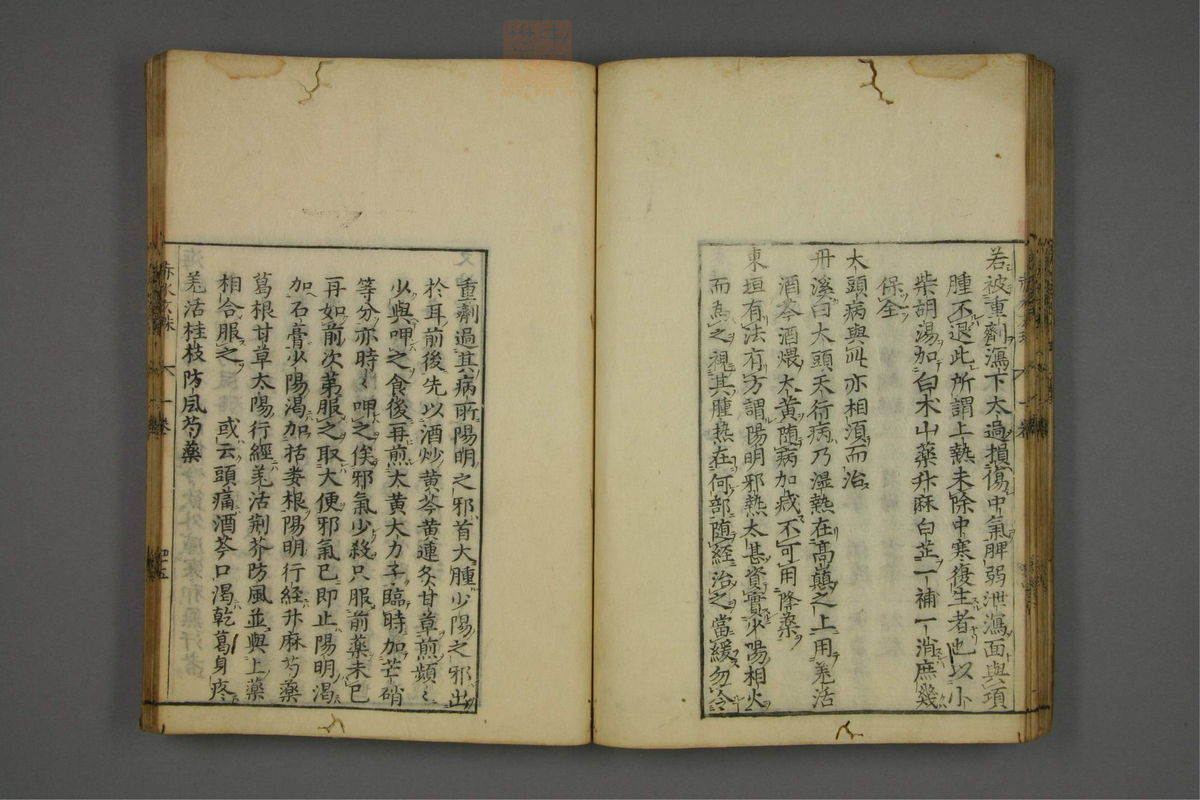 若被重劑瀉下太過損傷中氣脾弱泄瀉面與項
腫不退此所謂上熱未除中寒復生者也以小
柴胡湯加白朮山藥升麻白芷一補一消庶幾
保全
大頭病與此亦相須而治
丹溪曰大頭天行病乃湿熱在高巔之上用羌活
酒芩酒煨大黄随病加减不可用降藥
東垣有法有方謂陽明邪熱太甚資實少陽相火
而為之視其腫熱在何部随経治之當緩勿令
重劑過其病所陽明之邪首大腫少陽之邪出
於耳前後先以酒炒黄芩黄連炙甘草煎頻〻
少與呷之食後再煎大黄大力子臨時加芒硝
等分亦時〻呷之俟邪氣少殺只服前藥未已
再如前次第服之取大便邪氣已即止陽明渇
加石膏少陽渇加括蔞根陽明行経升麻芍藥
葛根甘草太陽行經羌活荊芥防風並與上藥
相合服之 或云頭痛酒芩口渇乾葛身疼
羌活桂枝防風芍藥